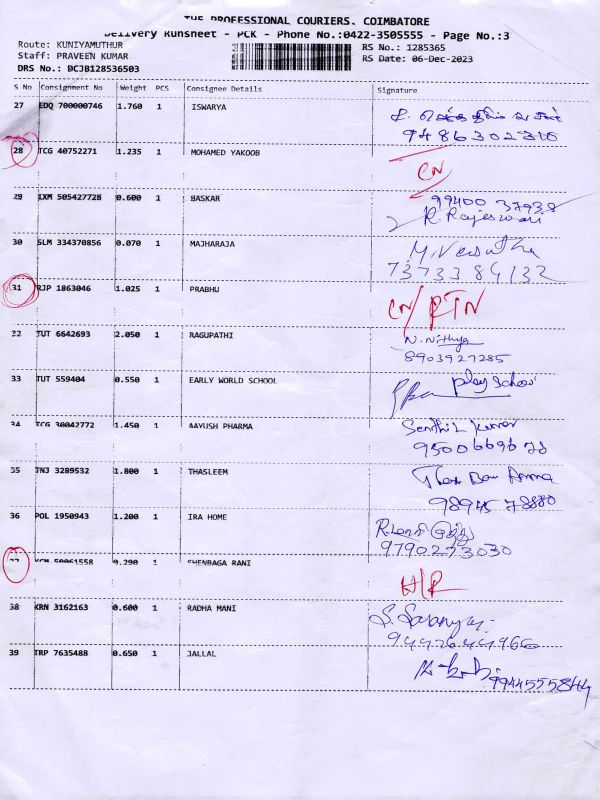 THE PROFESSIONAL COURIERS. COIMBATORE
Delivery Runsheet - PCK - Phone No.:0422-3505555 - Page No.:3
Route: KUNIYAMUTHUR
RS No.: 1285365
Staff: PRAVEEN KUMAR
RS Date: 06-Dec-2023
DRS No.: DCJB128536503
S No Consignment No Weight PCS Consignee Details Signature
27 EDQ 700000746 1.760 1 ISWARYA
9486302310
28 TCG 40752271 1.235 1 MOHAMED YAKOOB
CN
29 IXM 505427728 0.600 1 BASKAR
99400 37938
R. Rajeswari
30 SLM 334370856 0.070 1 MAJHARAJA
7373384132
31 RJP 1863046 1.025 1 PRABHU
CN/RTN
TUT 6642693 2.050 1 RAGUPATHI
N. Nithya
8903927285
33 TUT 559404 0.550 1 EARLY WORLD SCHOOL
play school
34 TCG 30042772 1.450 1 AAYUSH PHARMA
Senthil kumar
35 TNJ 3289532 1.800 1 THASLEEM
98945 78880
36 POL 1950943 1.200 1 IRA HOME
9790273030
0.290 1 SHENBAGA RANI
38 KRN 3162163 0.600 1 RADHA MANI
39 TRP 7635488 0.650 1 JALLAL